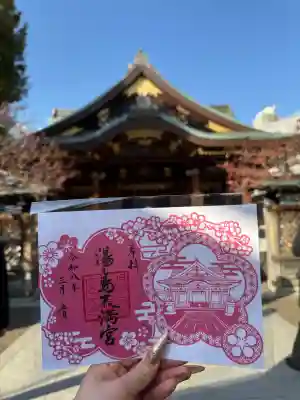 奉拝
湯島天満宮
令和八年
三月 日